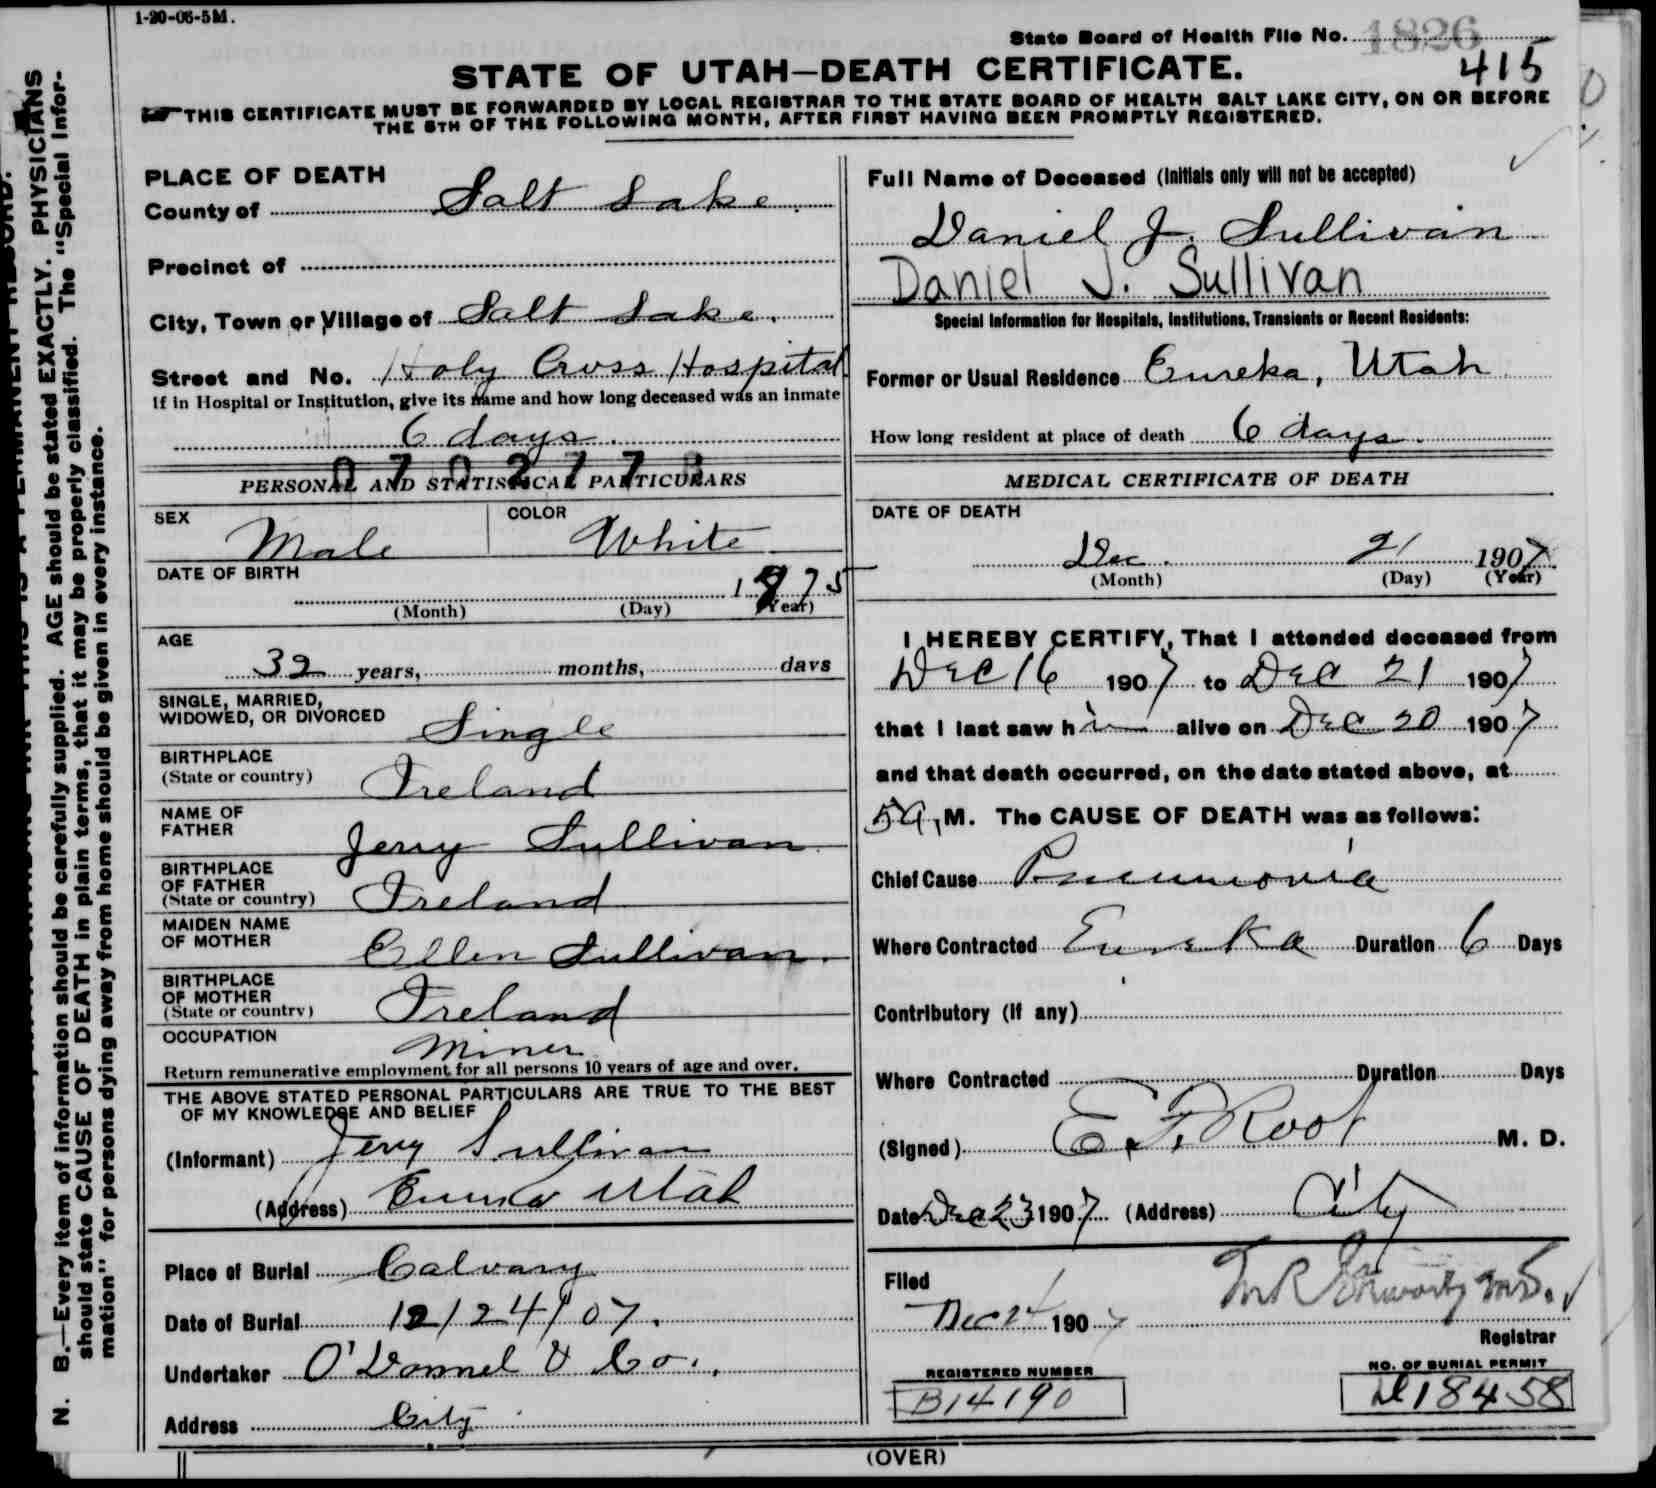 1-20-06-5M.
State Board of Health File No. 1826
415
STATE OF UTAH—DEATH CERTIFICATE.
THIS CERTIFICATE MUST BE FORWARDED BY LOCAL REGISTRAR TO THE STATE BOARD OF HEALTH SALT LAKE CITY, ON OR BEFORE
THE 5TH OF THE FOLLOWING MONTH, AFTER FIRST HAVING BEEN PROMPTLY REGISTERED.
PLACE OF DEATH
County of Salt Lake.
Precinct of
City, Town or Village of Salt Lake.
Street and No. Holy Cross Hospital
If in Hospital or Institution, give its name and how long deceased was an inmate
6 days.
PERSONAL AND STATISTICAL PARTICULARS
SEX Male
COLOR White
DATE OF BIRTH
1875
(Month) (Day) (Year)
AGE
32 years, months, days
SINGLE, MARRIED,
WIDOWED, OR DIVORCED Single
BIRTHPLACE
(State or country) Ireland
NAME OF
FATHER Jerry Sullivan
BIRTHPLACE
OF FATHER
(State or country) Ireland
MAIDEN NAME
OF MOTHER Ellen Sullivan.
BIRTHPLACE
OF MOTHER
(State or country) Ireland
OCCUPATION
Miner
Return remunerative employment for all persons 10 years of age and over.
THE ABOVE STATED PERSONAL PARTICULARS ARE TRUE TO THE BEST
OF MY KNOWLEDGE AND BELIEF
(Informant) Jerry Sullivan
(Address) Eureka Utah
Place of Burial Calvary
Date of Burial 12/24/07.
Undertaker O'Donnel & Co.,
Address City
Full Name of Deceased (Initials only will not be accepted)
Daniel J. Sullivan
Daniel J. Sullivan
Special Information for Hospitals, Institutions, Transients or Recent Residents:
Former or Usual Residence Eureka, Utah
How long resident at place of death 6 days.
MEDICAL CERTIFICATE OF DEATH
DATE OF DEATH
Dec. 21 1907
(Month) (Day) (Year)
I HEREBY CERTIFY, That I attended deceased from
Dec 16 1907 to Dec 21 1907
that I last saw him alive on Dec 20 1907
and that death occurred, on the date stated above, at
5 A, M. The CAUSE OF DEATH was as follows:
Chief Cause Pneumonia
Where Contracted Eureka Duration 6 Days
Contributory (if any)
Where Contracted Duration Days
(Signed) E. F. Root M. D.
Date Dec 23 1907 (Address) City
Filed
Dec 24 1907
Registrar
REGISTERED NUMBER
B14190
NO. OF BURIAL PERMIT
18458
(OVER)
N. B.—Every item of information should be carefully supplied. AGE should be stated EXACTLY. PHYSICIANS
should state CAUSE OF DEATH in plain terms, that it may be properly classified. The "Special Infor-
mation" for persons dying away from home should be given in every instance.